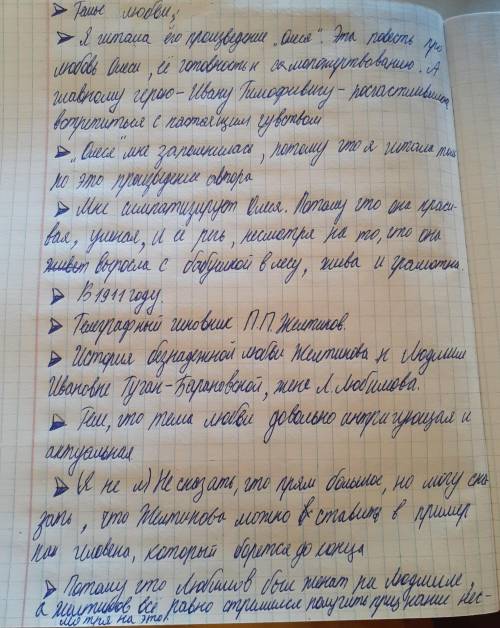 ➤ Теме любви;
➤ Я читала его произведение „Олеся". Эта повесть про
любовь Олеси, её готовность к самопожертвованию. А
главному герою - Ивану Тимофевичу - посчастливилось
встретиться с настоящим чувством
➤ „Олеся" мне запомнилась, потому что я читала толь
ко это произведение автора
➤ Мне симпатизирует Олеся. Потому что она краси-
вая, умная, и её речь, несмотря на то, что она
выросла с бабушкой в лесу, жива и грамотна.
➤ В 1911 году.
➤ Телеграфный чиновник П.П. Желтиков.
➤ История безнадежной любви Желтикова к Людмиле
Ивановне Туган-Барановской, жене Л. Любимова.
➤ Тем, что тема любви довольно интригующая и
актуальная
➤ Не сказать, что прям большое, но могу ска
зать, что Желтикова можно ставить в пример
как человека, который борется до конца
➤ Потому что Любимов был женат на Людмиле,
а Желтиков всё равно стремился получить признание нес-
мотря на это.